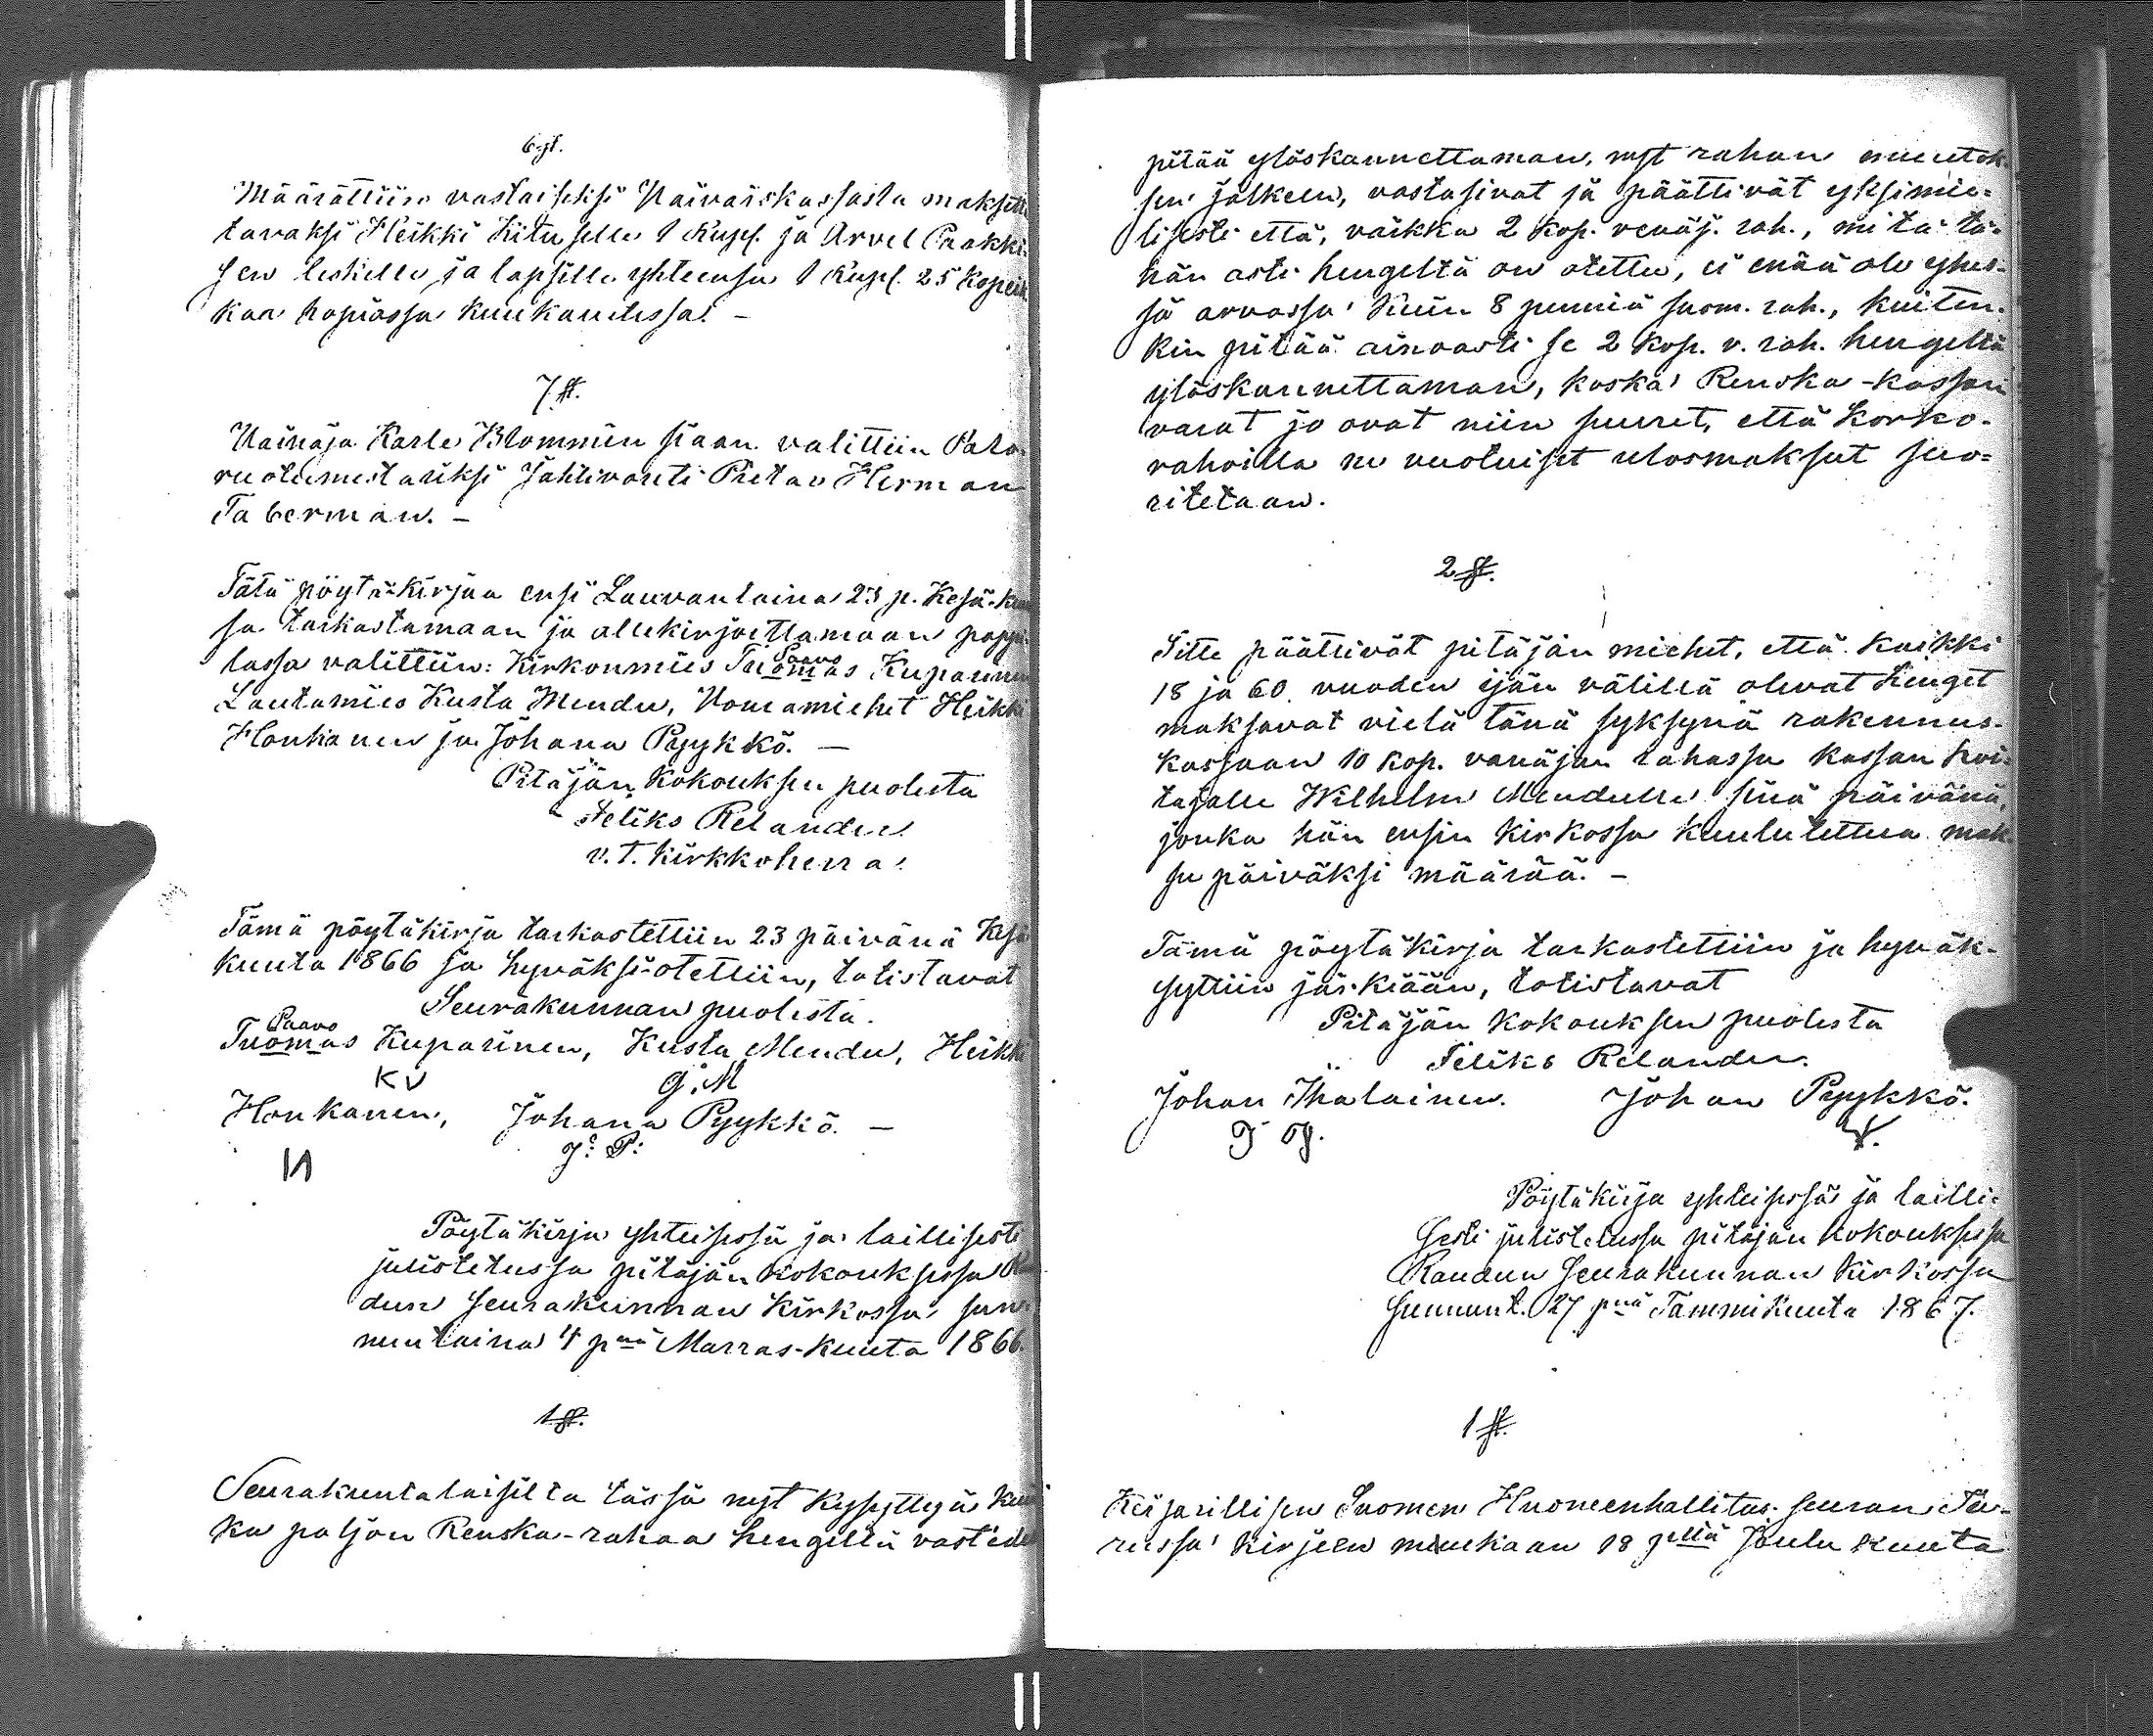 6 §.
Määrättiin vastaiseksi Vaivaiskassasta maksett
tavaksi Heikki Kituselle 1 Rupl. ja Arvel Paakki
sen leskelle ja lapsille yhteensä 1 Rupl. 25 Kopeik
kaa hopiassa kuukautessa. –
7 §.
Vainaja Karle Blommin siaan valittiin Palo
ruotumestariksi Jahtivouti Pietar Herman
Taberman. –
Tätä pöytäkirjaa ensi Lauvantaina 23 p. Kesä-kuu
sa tarkastamaan ja allekirjoittamaan pappi
lassa valittiin: Kirkonmies Tuomas Paavo Kuparinen
Lautamies Kusta Mendu, Vouramiehet Heikki
Honkanen ja Johana Pyykkö. –
Pitäjän Kokouksen puolesta
Feliks Relander.
v. T. Kirkkoherra.
Tämä pöytäkirja tarkastettiin 23 päivänä Kesä
kuuta 1866 ja hyväksi-otettiin, totistavat
Seurakunnan puolesta.
Paavo
Tuomas Kuparinen, Kusta Mendu, Heikki
KV G. M
Honkanen, Johana Pyykkö. –
J: P:
Pöytäkirja yhteisessä ja laillisesti
julistetussa pitäjän kokouksessa Rau
dun seurakunnan kirkossa, sun
nuntaina 4 pnä Marras-kuuta 1866.
1 §.
Seurakuntalaisilta tässä nyt kysyttyä kui
ka paljon Renska-rahaa hengeltä vastedes
pitää ylöskannettaman, nyt rahan muutok
sen jälkeen, vastasivat ja päättivät yksimie=
lisesti että, vaikka 2 Kop. venäj. rah., mitä tä=
hän asti hengeltä on otettu, ei enää ole yhes=
sä arvossa kuin 8 penniä suom. rah., kuiten=
kin pitää ainoasti se 2 Kop. v. rah. hengeltä
ylöskannettaman, koska Renska-kassan
varat jo ovat niin suuret, että korko-
rahoilla ne vuotuiset ulosmaksut suo=
ritetaan.
2 §.
Sitte päättivät pitäjän miehet, että kaikki
18 ja 60 vuoden ijän välillä olevat henget
maksavat vielä tänä syksynä rakennus-
kassaan 10 Kop. vanäjan rahassa kassan hoi=
tajalle Wilhelm Mendulle sinä päivänä,
jonka hän ensin kirkossa kuulutettua mak
su päiväksi määrää. –
Tämä pöytäkirja tarkastettiin ja hyväk-
syttiin järkiään, totistavat
Pitäjän Kokouksen puolesta
Feliks Relander.
Johan Ihalainen. Johan Pyykkö.
Pöytäkirja yhteisessä ja lailli=
sesti julistetussa pitäjän kokouksessa
Raudun seurakunnan kirkossa
sunnunt. 27 pnä Tammikuuta 1867.
1 §.
Keisarillisen Suomen Huoneenhallitus-seuran Tu=
russa kirjeen mukaan 18 pltä Joulukuuta